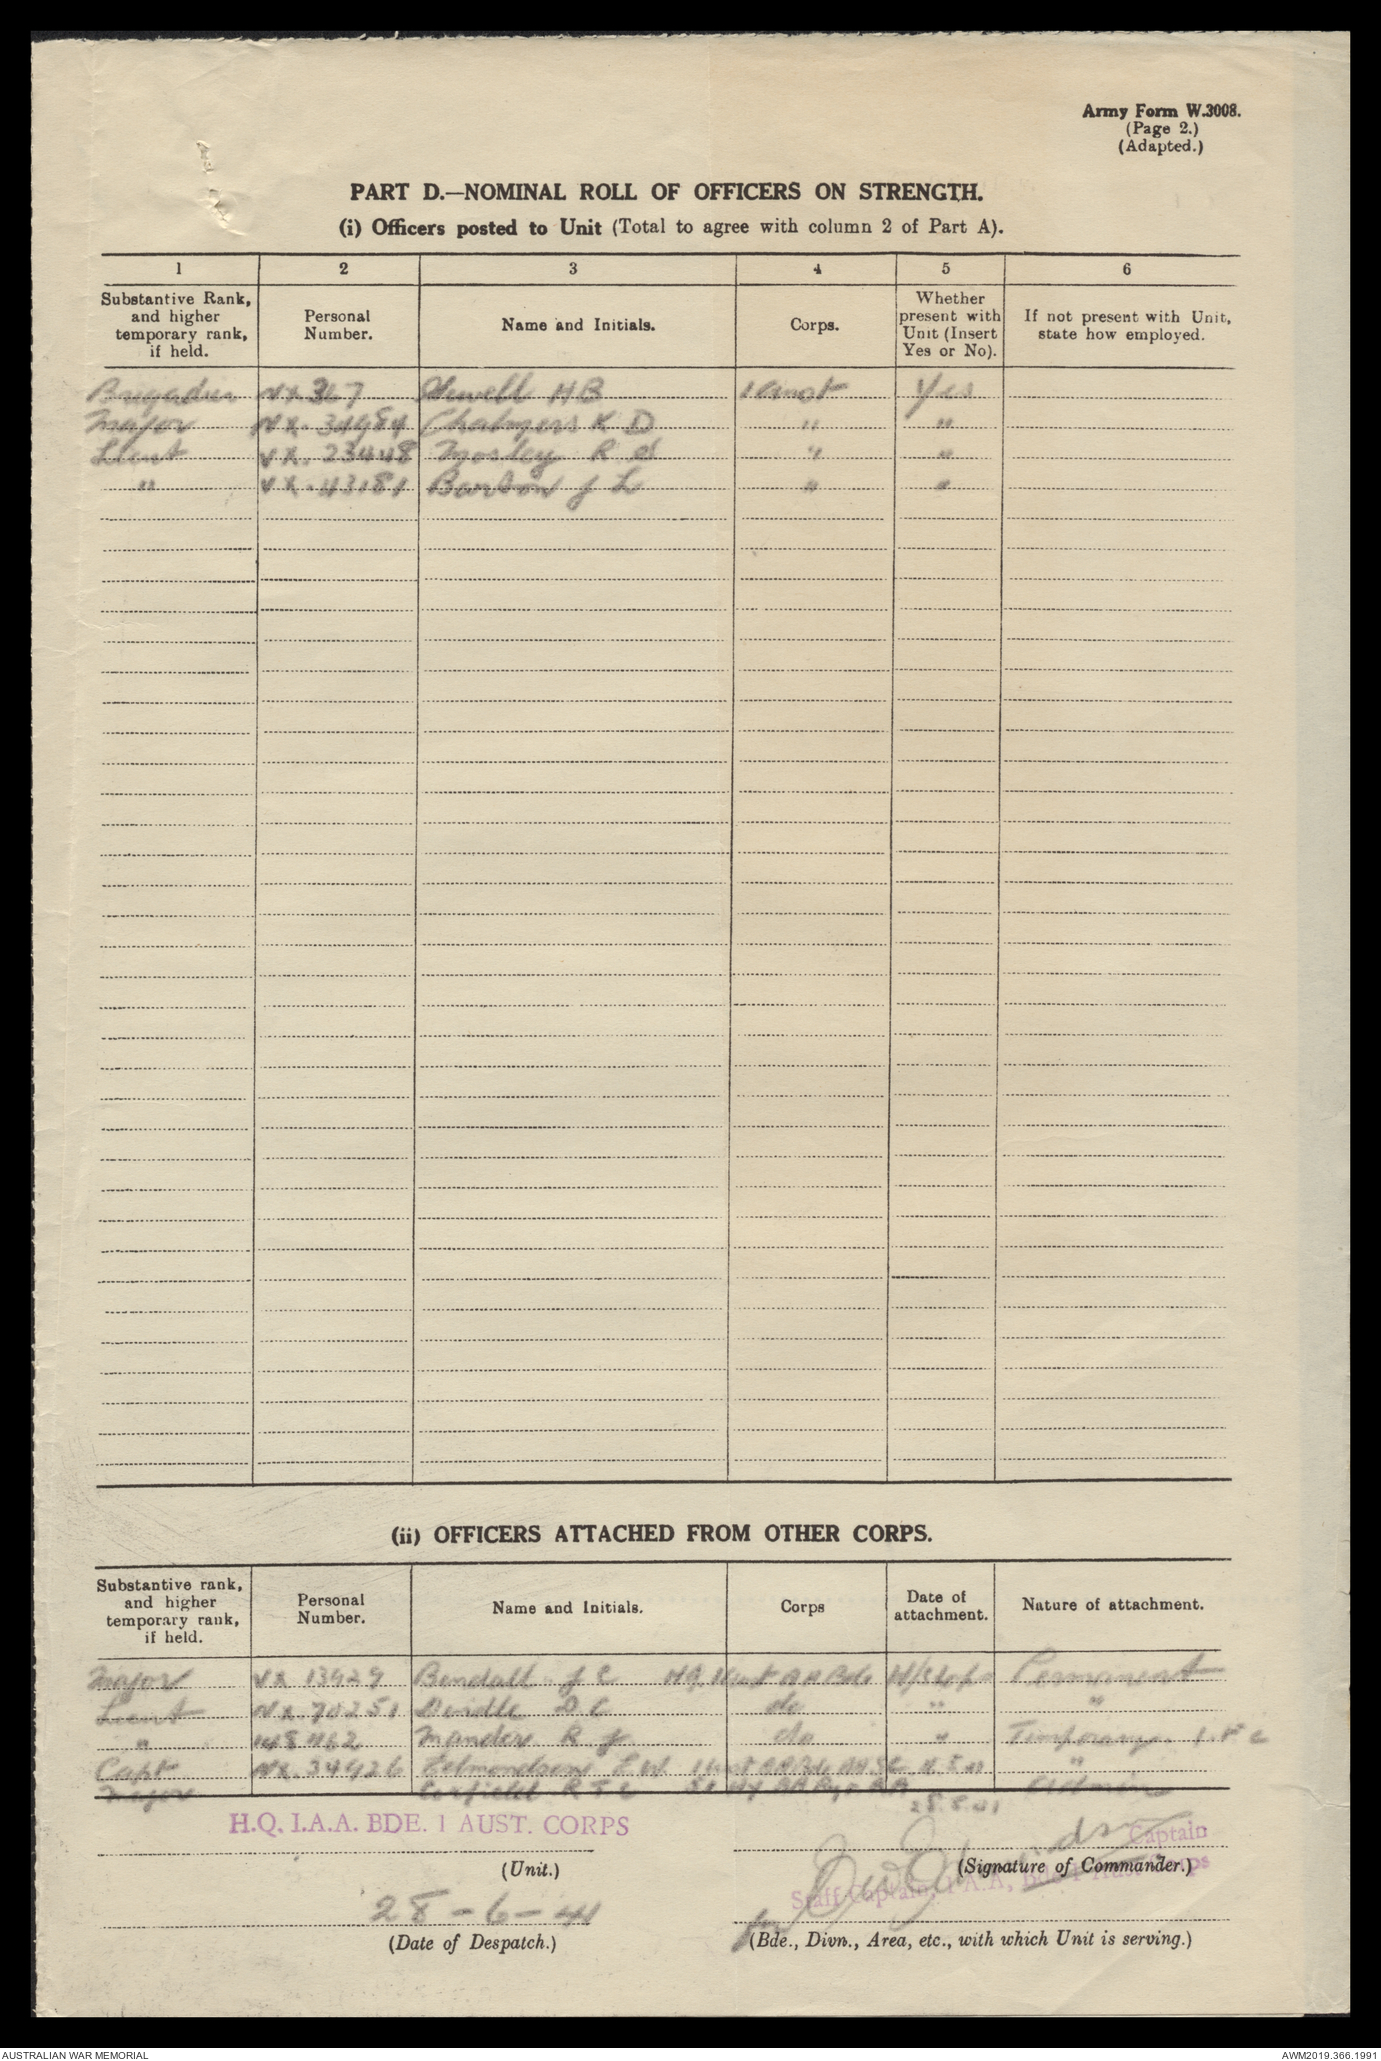 Army Form W.3008.
(Page 2.)
(Adapted.)
PART D.—NOMINAL ROLL OF OFFICERS ON STRENGTH.
(i) Officers posted to Unit (Total to agree with column 2 of Part A).
1 2 3 4 5 6
Substantive Rank, and higher temporary rank, if held. Personal Number. Name and Initials. Corps. Whether present with Unit (Insert Yes or No). If not present with Unit, state how employed.
Brigadier VX 367 Sewell H B Yes
Major NX. 34984 Chalmers K D " "
Lieut VX. 23448 Mosley R " "
" VX. 43181 Barton J L " "
(ii) OFFICERS ATTACHED FROM OTHER CORPS.
Substantive rank, and higher temporary rank, if held. Personal Number. Name and Initials. Corps Date of attachment. Nature of attachment.
Major VX 13929 Bendall J C HQ. 1 Aust AA Bde Permanent
Lieut NX. 70251 D C do " "
" R J do " Temporary.
Capt NX. 34926 Edmondson E.W. "
Major Corfield R T C
28.5.41
H.Q. I.A.A. BDE. 1 AUST. CORPS
Captain
(Unit.) (Signature of Commander.)
Staff Captain, 1 A.A, Bde 1 Aust Corps
28-6-41
for
(Date of Despatch.) (Bde., Divn., Area, etc., with which Unit is serving.)
AUSTRALIAN WAR MEMORIAL AWM2019.366.1991